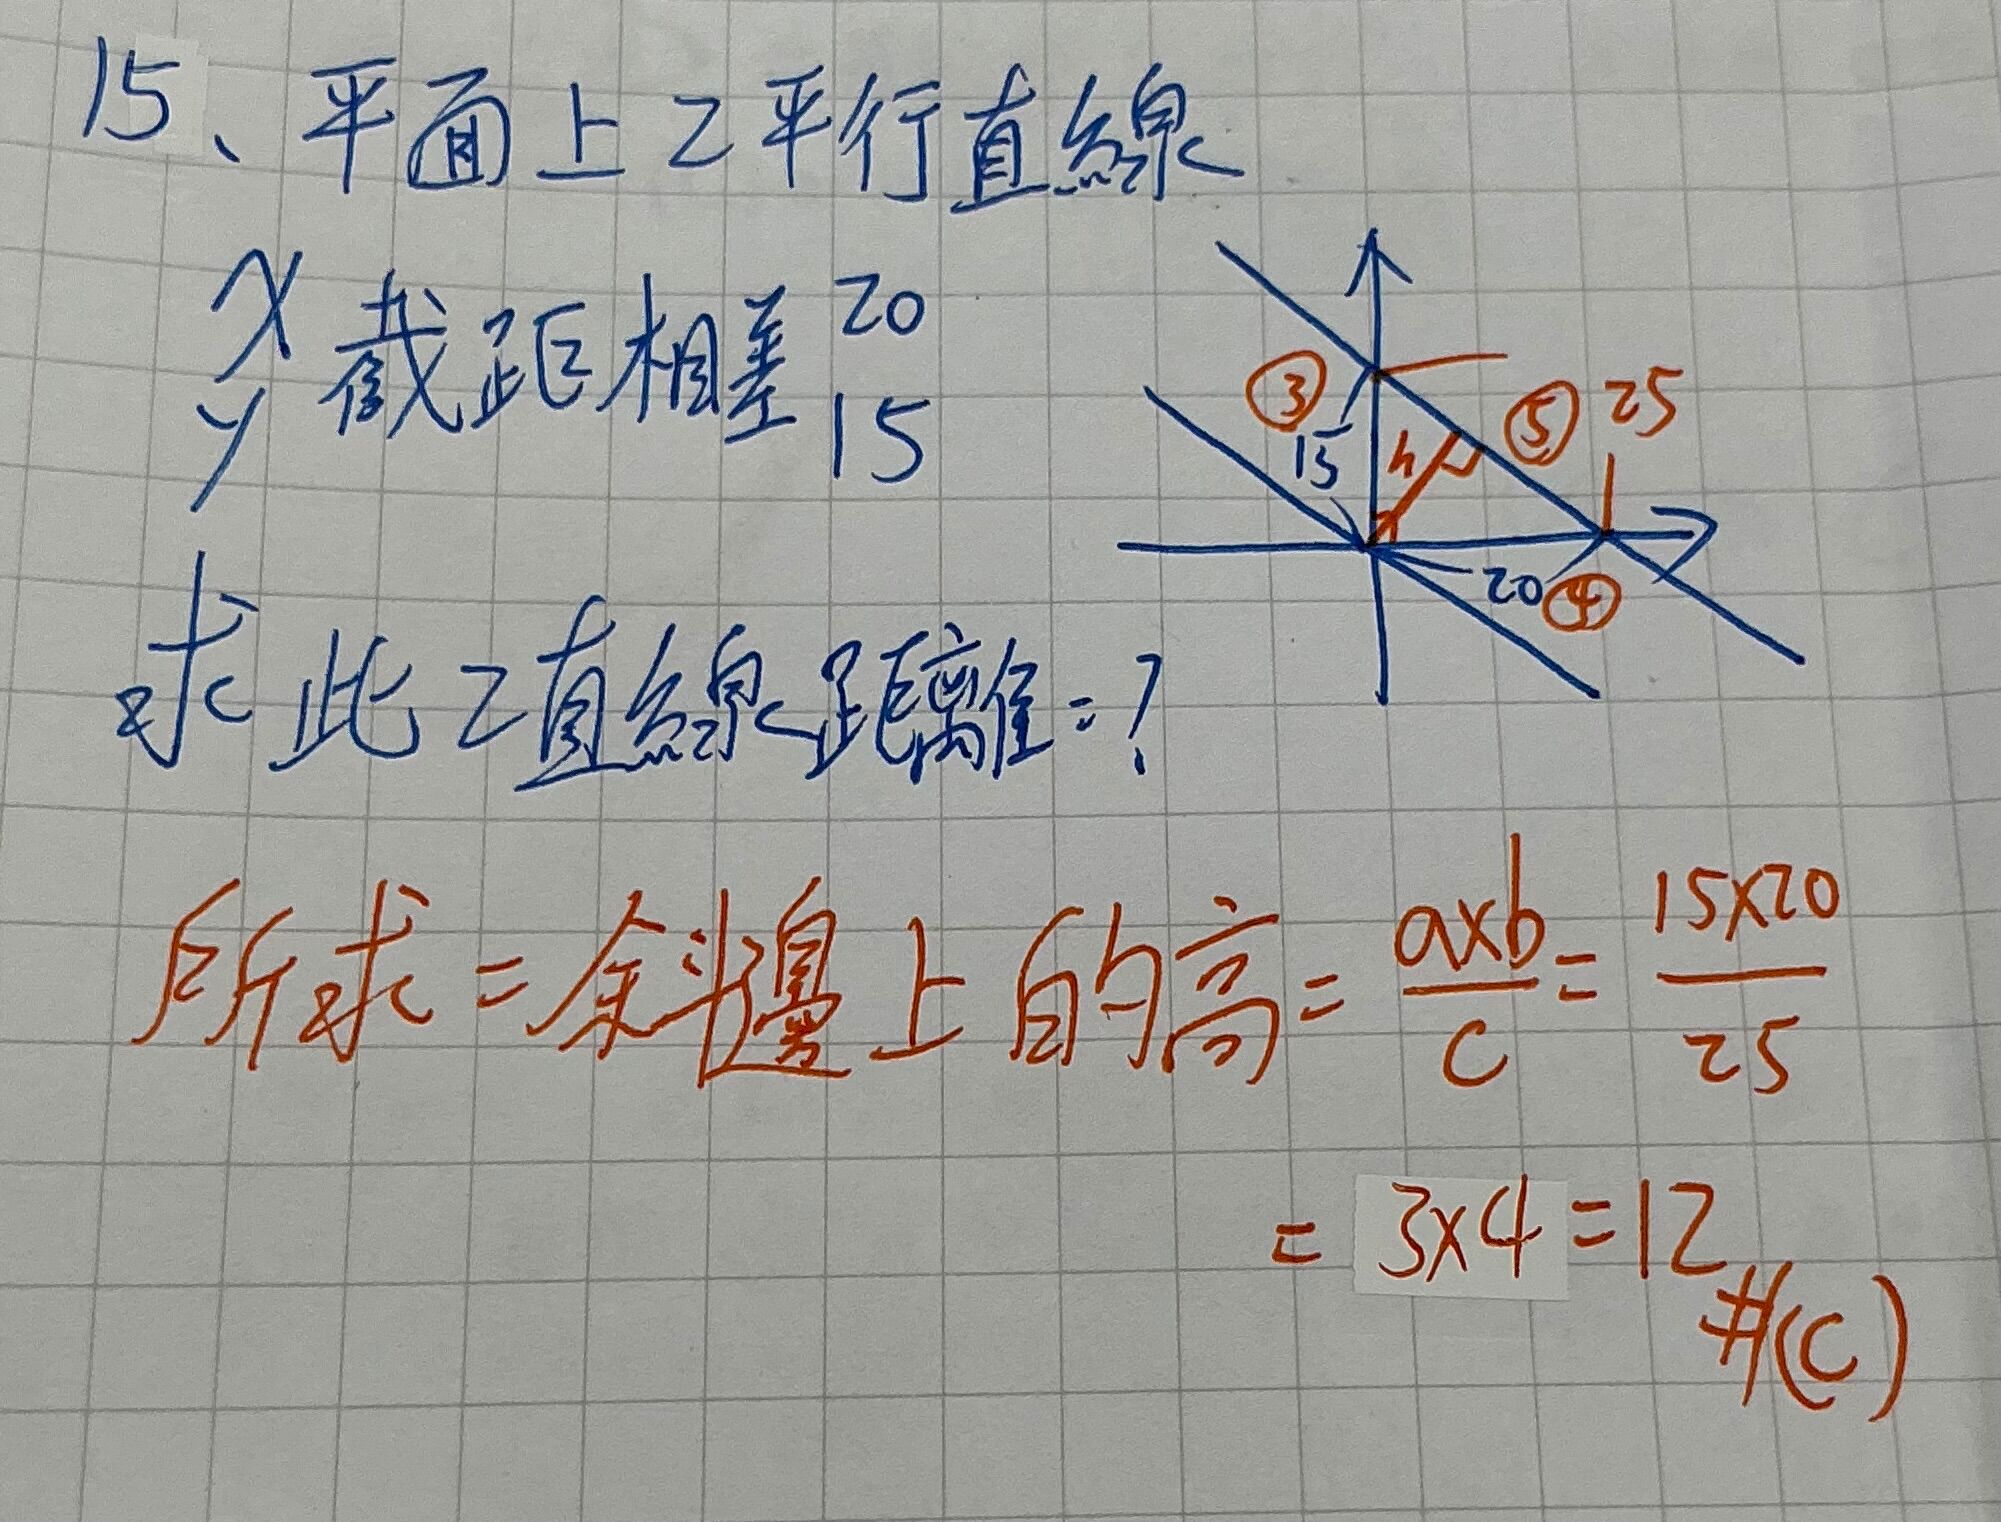 15、平面上2平行直線
x
y 截距相差 20
15
求此2直線距離=?
③ 15 h ⑤ 25
20 ④
所求=斜邊上的高= a×b/c = 15×20/25
= 3×4=12 #(C)